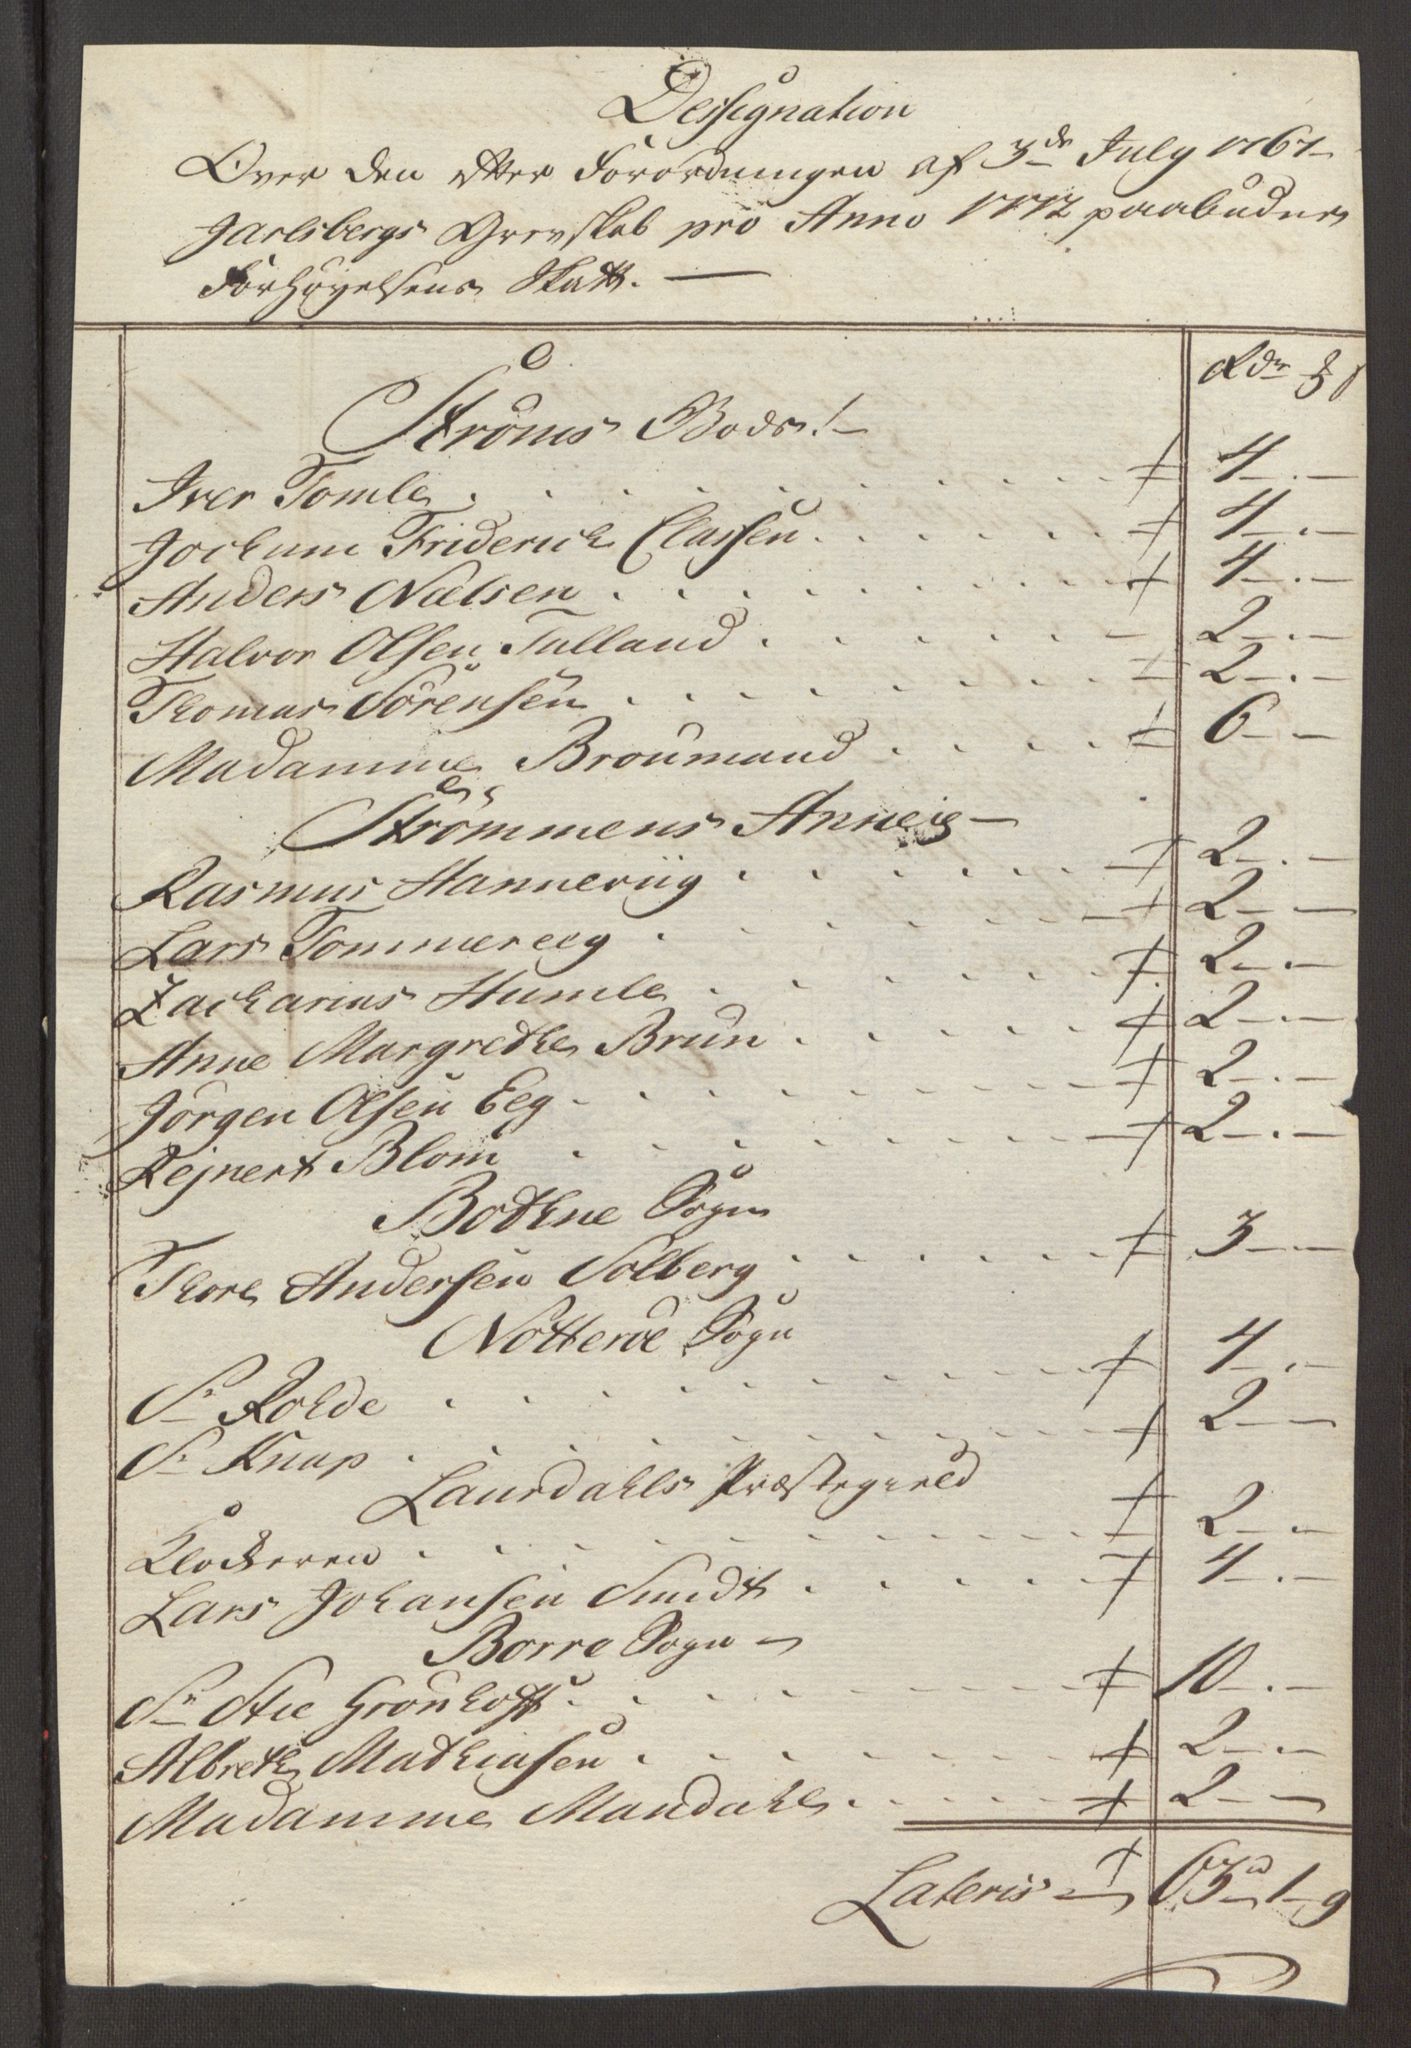 Dessignation
Over den efter Forordningen af 3de July 1767
Jarlsbergs Grevskab pro Anno 1772 paabudne
Forhøyelsens Skatt.
Rdr
Ströms Bods!
Iver Tomle . . . 4 . –
Jochum Friderich Classen . . . 4 . –
Anders Nielsen . . . 4 . –
Halvor Olsen Tulland . . . 2 . –
Thomas Sörensen . . . 2 . –
Madamme Broumand . . . 6 – –
Strömmens Annex
Rasmus Hanneviig . . . 2 . –
Lars Tommereeg . . . 2 – –
Zacharias Humle . . . 2 . –
Anne Margrethe Brun . . . 2 . –
Jörgen Olsen Eeg . . . 2 . –
Rejnert Blom . . . 2 . –
Bothne Sogn
Thore Andersen Solberg . . . 3 – –
Nötteröe Sogn
Sr Rohde . . . 4 . –
Sr Knap . . . 2 – –
Laurdahls Præstegield
Klockeren . . . 2 . –
Lars Johansen Smidt . . . 4 . –
Borre Sogn
Sr Stie Grönhoff . . . 10 . –
Albreth Mathiasen . . . 2 . –
Madamme Mandahl . . . 2 – –
Lateris 63 1 9